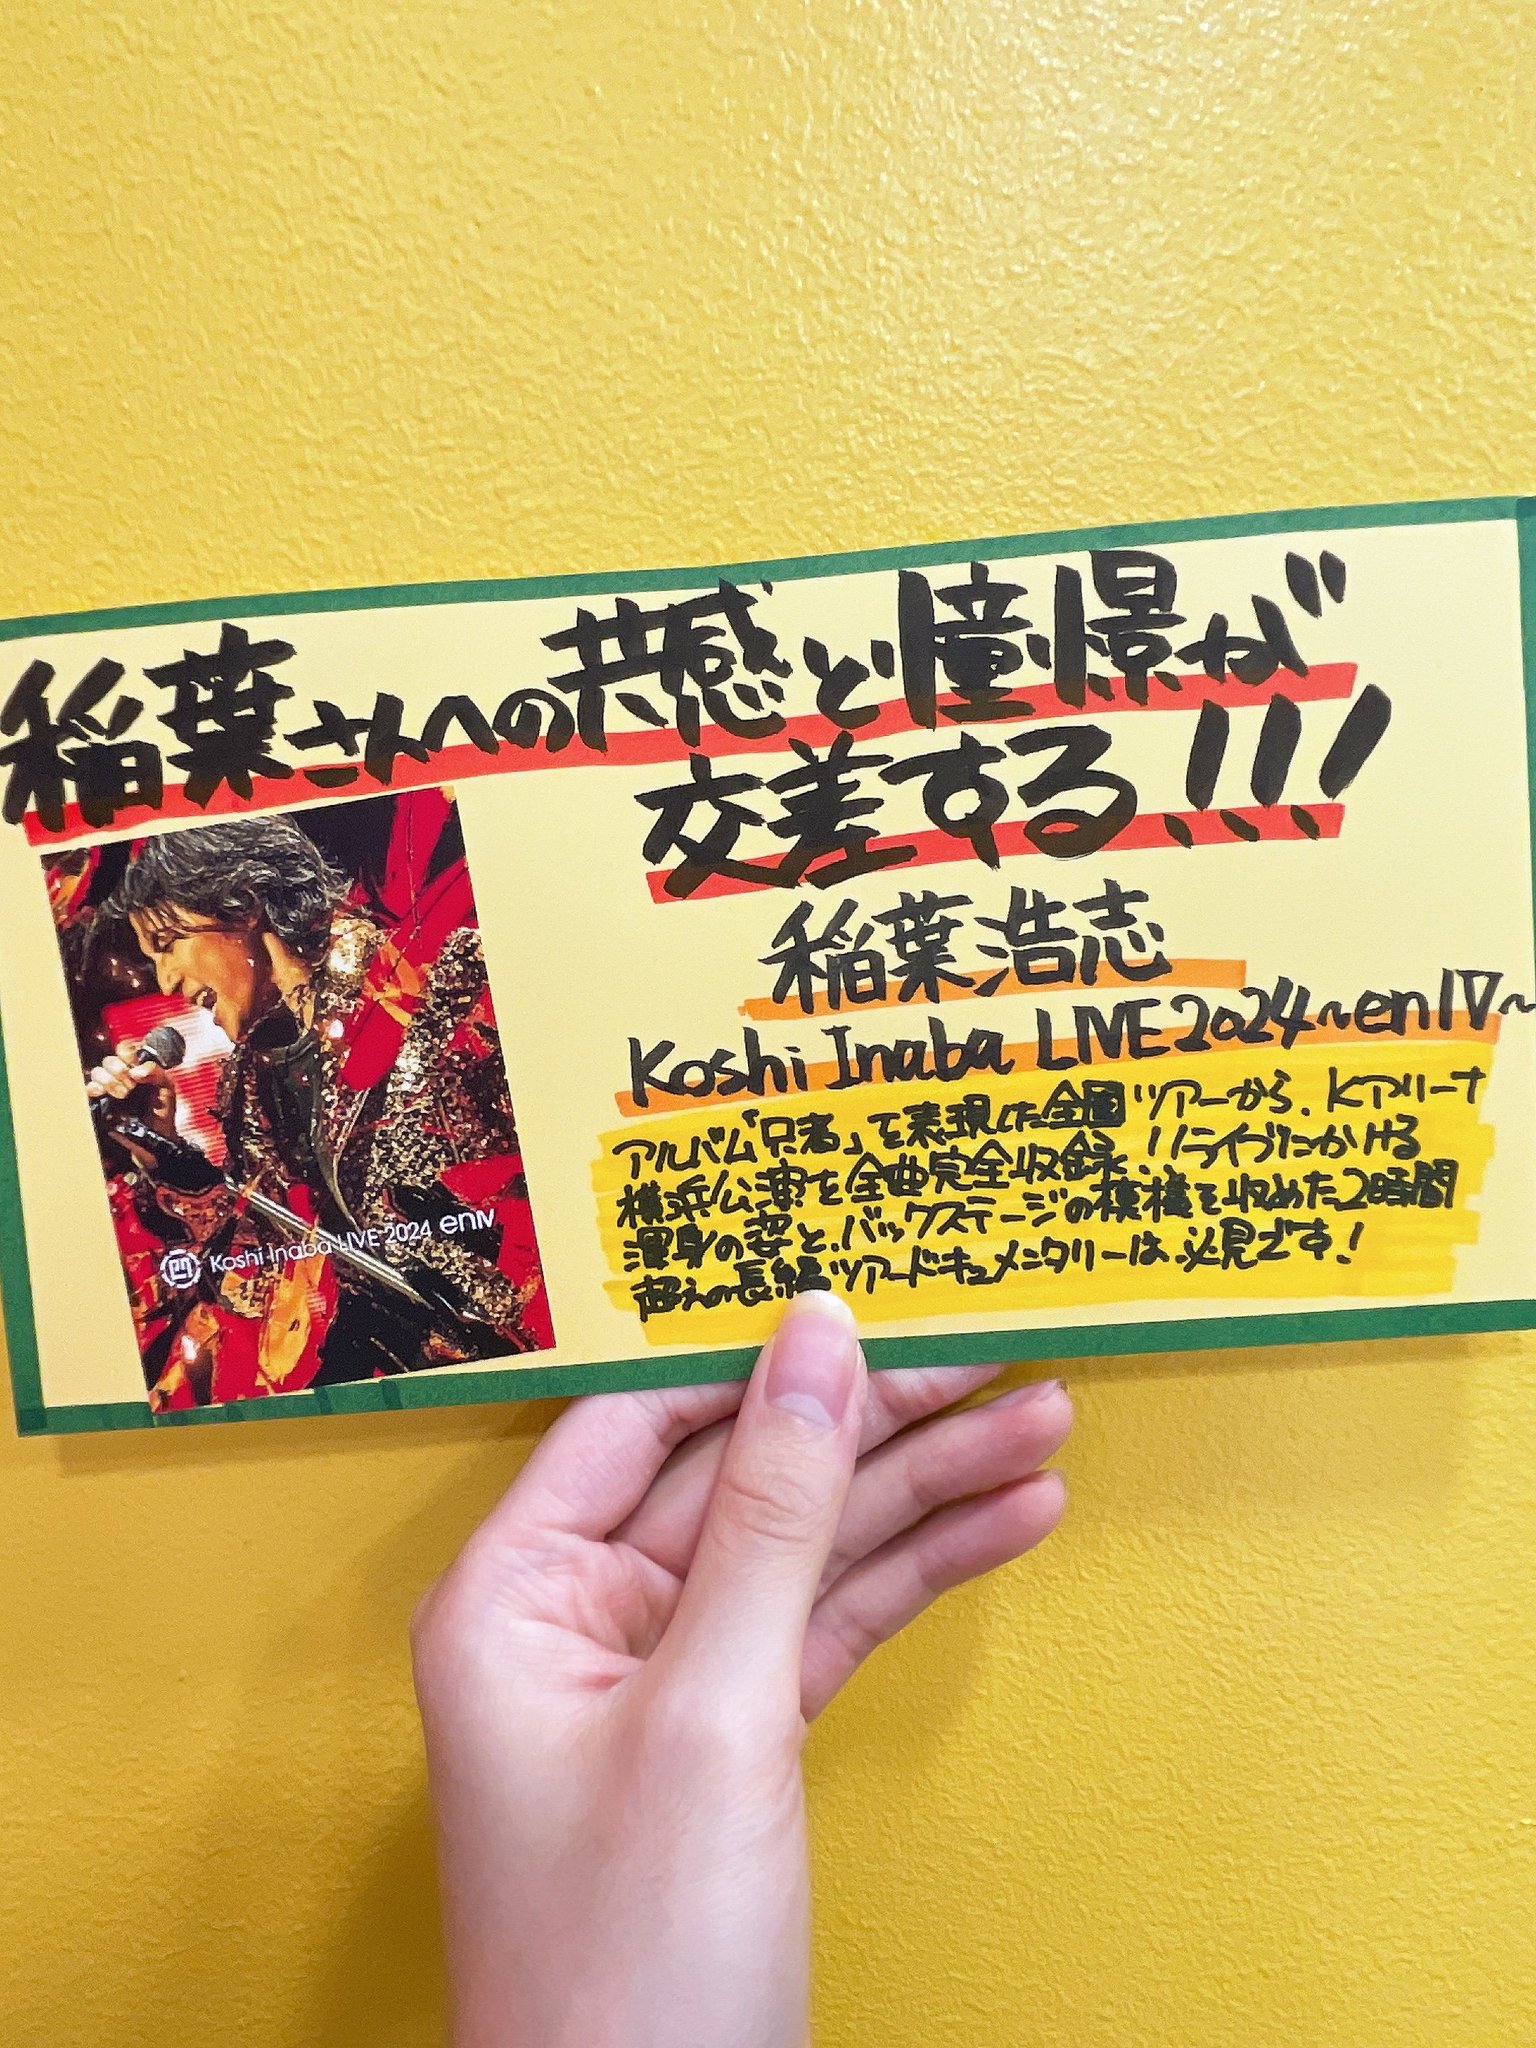 稲葉さんへの共感と憧憬が
交差する!!!
稲葉浩志
Koshi Inaba LIVE 2024~enⅣ~
アルバム「只者」を表現した全国ツアーから、Kアリーナ
横浜公演を全曲完全収録!ライブにかける
渾身の姿と、バックステージの模様を収めた2時間
超えの長編ツアードキュメンタリーは、必見です!
Koshi Inaba LIVE 2024 enⅣ